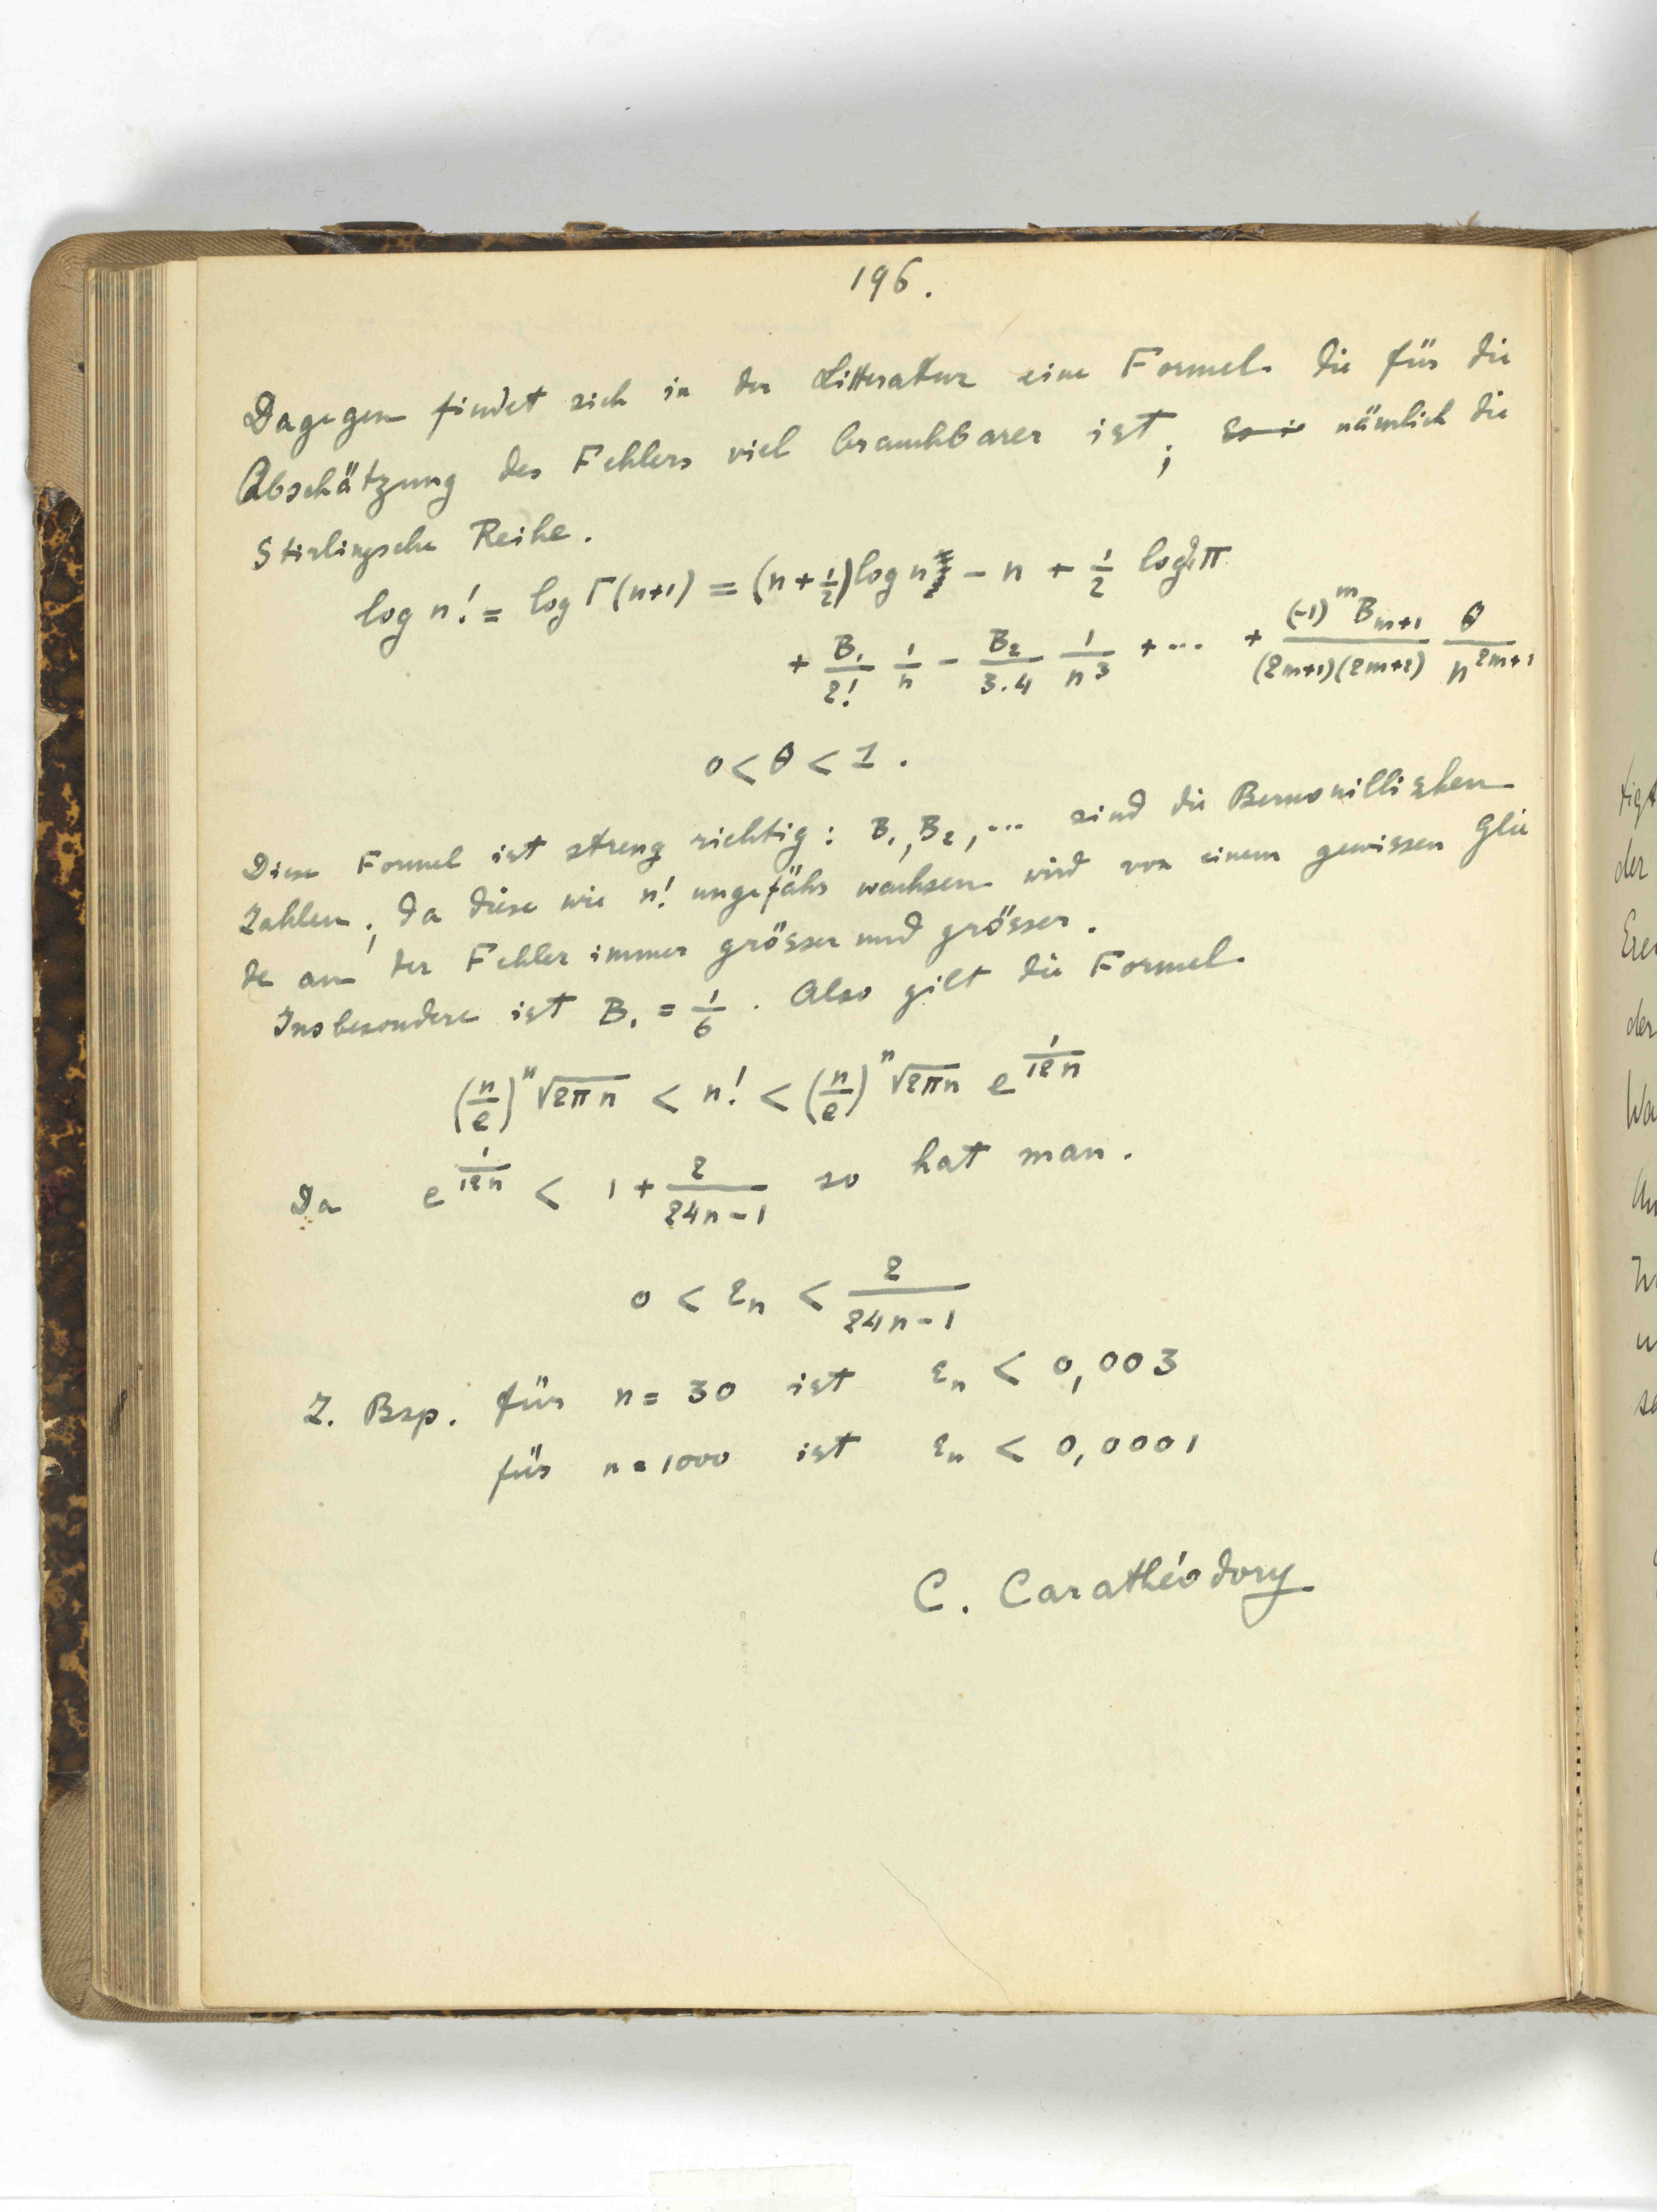 196.
Dagegen findet sich in der Litteratur eine Formel die für die
Abschätzung des Fehlers viel brauchbarer ist; nämlich die
Stirlingsche Reihe.
log n! = log Γ(n+1) = (n + 1/2) log n − n + 1/2 log 2π
+ B₁/2! 1/n − B₂/3.4 1/n³ + ... + (-1)^m B_{m+1}/(2m+1)(2m+2) θ/n^{2m+1}
0 < θ < 1.
Diese Formel ist streng richtig: B₁, B₂, ... sind die Bernouillischen
Zahlen; da diese wie n! ungefähr wachsen wird von einem gewissen Glie
de an der Fehler immer grösser und grösser.
Insbesondere ist B₁ = 1/6. Also gilt die Formel
(n/e)^n √2πn < n! < (n/e)^n √2πn e^{1/12n}
Da e^{1/12n} < 1 + 2/24n−1 so hat man.
0 < ε_n < 2/24n−1
Z. Bsp. für n = 30 ist ε_n < 0,003
für n = 1000 ist ε_n < 0,0001
C. Carathéodory
der
der